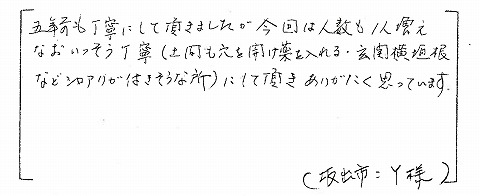 五年前も丁寧にして頂きましたが今回は人数も1人増え
なおいっそう丁寧(土間も穴を開け薬を入れる・玄関横垣根
などシロアリが付きそうな所)にして頂きありがたく思っています.
(坂出市:Y様)